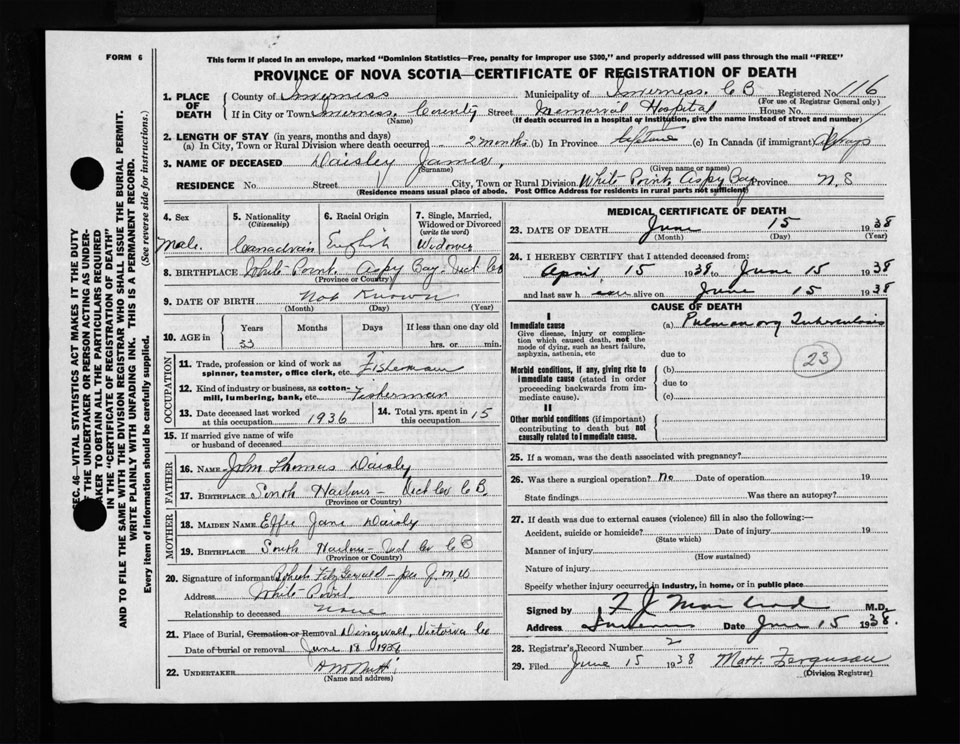 FORM 6
This form if placed in an envelope, marked "Dominion Statistics—Free, penalty for improper use $300," and properly addressed will pass through the mail "FREE"
PROVINCE OF NOVA SCOTIA—CERTIFICATE OF REGISTRATION OF DEATH
1. PLACE OF DEATH County of Inverness Municipality of Inverness. C B Registered No. 116
(For use of Registrar General only)
If in City or Town Inverness. County Street Memorial Hospital House No.
(Name) (If death occurred in a hospital or institution, give the name instead of street and number)
2. LENGTH OF STAY (in years, months and days)
(a) In City, Town or Rural Division where death occurred 2 months (b) In Province lifetime (c) In Canada (if immigrant) always
3. NAME OF DECEASED Daisley James,
(Surname) (Given name or names)
RESIDENCE No. Street City, Town or Rural Division White Point Aspy Bay Province N. S
(Residence means usual place of abode. Post Office Address for residents in rural parts not sufficient)
4. Sex
Male.
5. Nationality
(Citizenship)
Canadian
6. Racial Origin
English
7. Single, Married, Widowed or Divorced
(write the word)
Widower
8. BIRTHPLACE White Point. Aspy Bay. Vict Co
(Province or Country)
9. DATE OF BIRTH Not Known
(Month) (Day) (Year)
10. AGE in Years Months Days If less than one day old
33 hrs. or min.
OCCUPATION
11. Trade, profession or kind of work as spinner, teamster, office clerk, etc. Fisherman
12. Kind of industry or business, as cotton-mill, lumbering, bank, etc. Fisherman
13. Date deceased last worked at this occupation 1936
14. Total yrs. spent in this occupation 15
15. If married give name of wife or husband of deceased
FATHER
16. NAME John Thomas Daisly
17. BIRTHPLACE South Harbour - Vict Co C B.
(Province or Country)
MOTHER
18. MAIDEN NAME Effie Jane Daisly
19. BIRTHPLACE South Harbour - Vict Co C B
(Province or Country)
20. Signature of informant Robert FitzGerald - per J. M. D
Address White Point.
Relationship to deceased None
21. Place of Burial, Cremation or Removal Dingwall, Victoria Co
Date of burial or removal June 18 1938
22. UNDERTAKER
(Name and address)
MEDICAL CERTIFICATE OF DEATH
23. DATE OF DEATH June 15 1938
(Month) (Day) (Year)
24. I HEREBY CERTIFY that I attended deceased from:
April 15 1938 to June 15 1938
and last saw h im alive on June 15 1938
CAUSE OF DEATH
I
Immediate cause
Give disease, injury or complication which caused death, not the mode of dying, such as heart failure, asphyxia, asthenia, etc
(a) Pulmonary Tuberculosis
due to
23
Morbid conditions, if any, giving rise to immediate cause (stated in order proceeding backwards from immediate cause).
(b)
due to
(c)
II
Other morbid conditions (if important) contributing to death but not causally related to immediate cause.
25. If a woman, was the death associated with pregnancy?
26. Was there a surgical operation? No Date of operation 19
State findings Was there an autopsy?
27. If death was due to external causes (violence) fill in also the following:—
Accident, suicide or homicide? Date of injury 19
(State which)
Manner of injury
(How sustained)
Nature of injury
Specify whether injury occurred in industry, in home, or in public place
Signed by M.D.
Address Inverness Date June 15 1938.
28. Registrar's Record Number 2
29. Filed June 15 1938 Matt. Ferguson
(Division Registrar)
SEC. 46—VITAL STATISTICS ACT MAKES IT THE DUTY
OF THE UNDERTAKER OR PERSON ACTING AS UNDERTAKER TO OBTAIN ALL THE PARTICULARS REQUIRED
IN THE "CERTIFICATE OF REGISTRATION OF DEATH"
AND TO FILE THE SAME WITH THE DIVISION REGISTRAR WHO SHALL ISSUE THE BURIAL PERMIT.
WRITE PLAINLY WITH UNFADING INK. THIS IS A PERMANENT RECORD.
Every item of information should be carefully supplied. (See reverse side for instructions.)